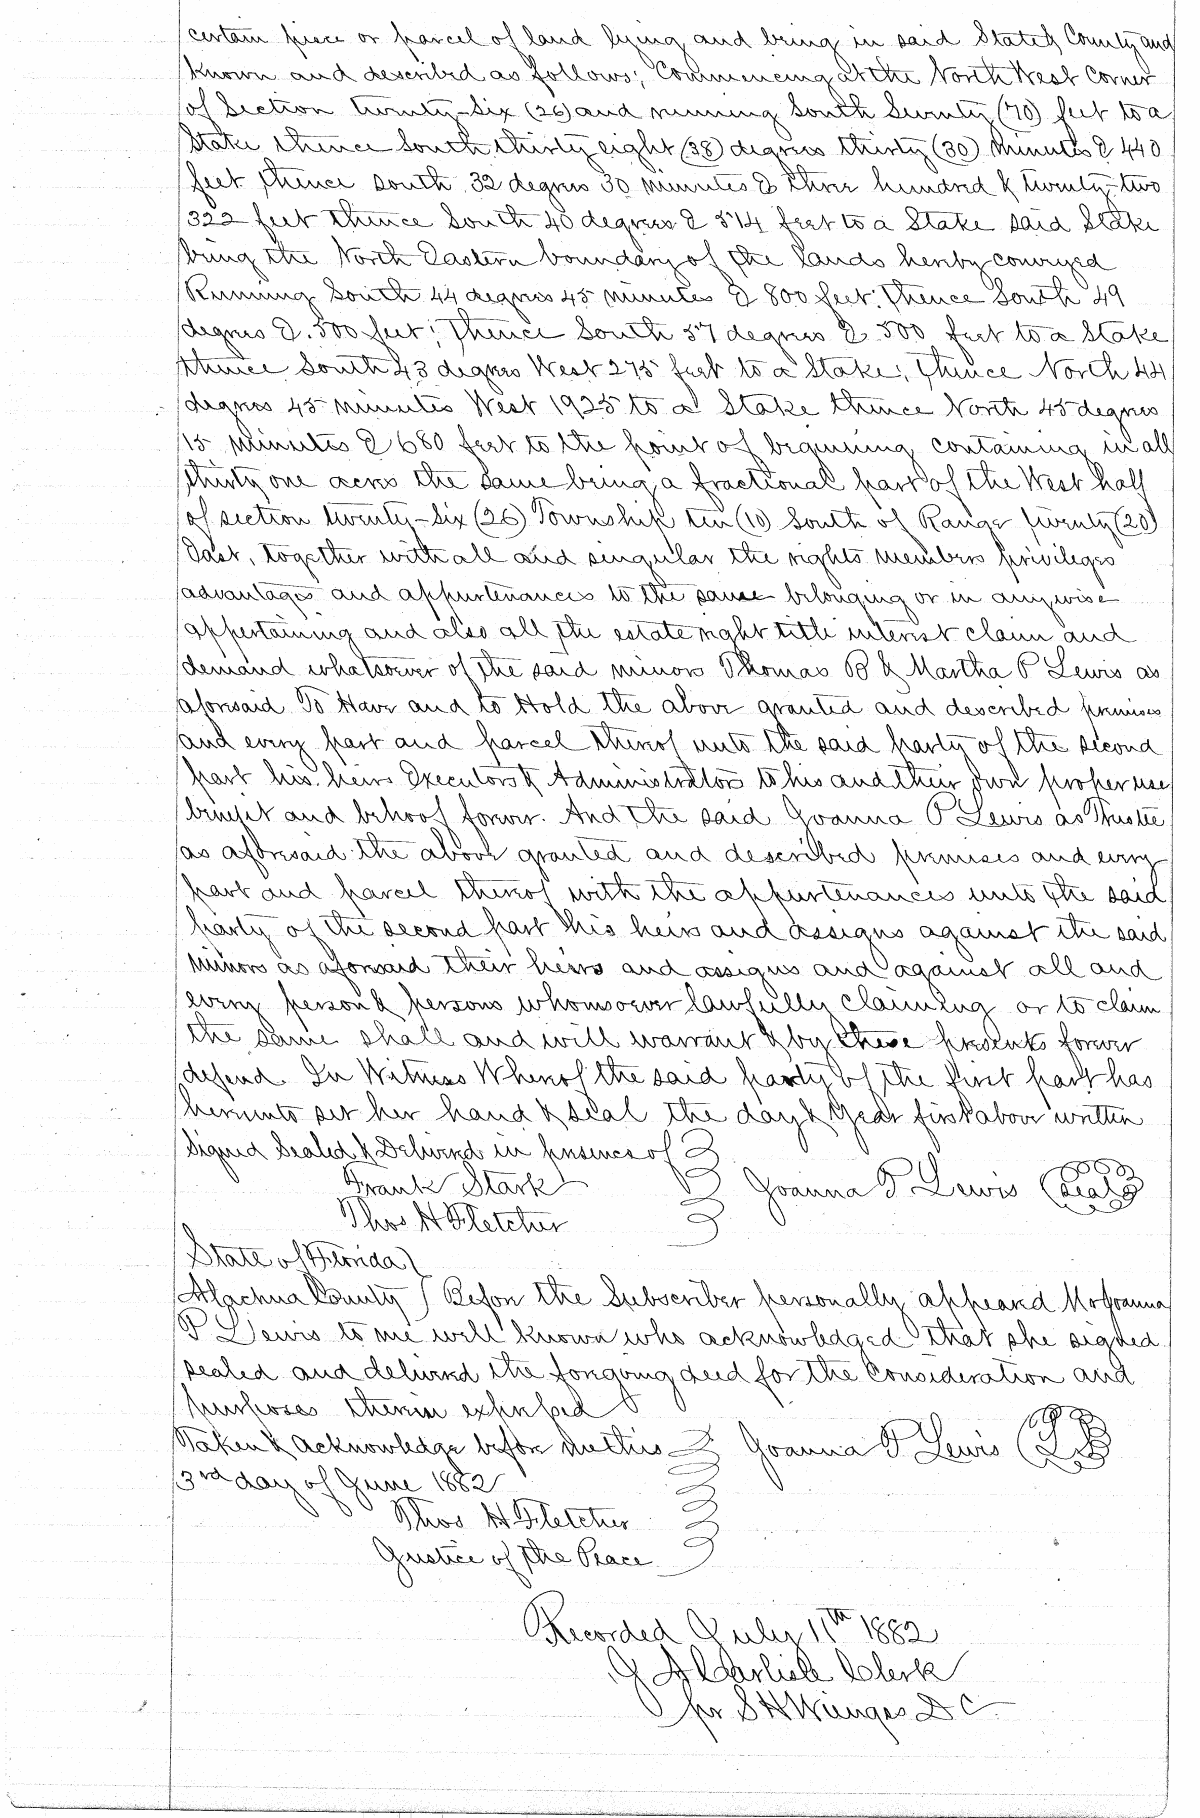 certain piece or parcel of land lying and being in said State & County and
known and described as follows; Commencing at the North West Corner
of Section twenty-six (26) and running South Seventy (70) feet to a
Stake thence South thirty eight (38) degrees thirty (30) minutes E 440
feet thence south 32 degrees 30 minutes E three hundred & twenty-two
322 feet thence South 40 degrees E 514 feet to a Stake said Stake
being the North Eastern boundary of the lands hereby conveyed
Running South 44 degrees 45 minutes E 800 feet; thence South 49
degrees E. 500 feet; thence South 57 degrees E 500 feet to a Stake
thence South 43 degrees West 275 feet to a Stake; thence North 44
degrees 45 minutes West 1925 to a Stake thence North 45 degrees
15 minutes E 680 feet to the point of beginning containing in all
thirty one acres the same being a fractional part of the West half
of section twenty-six (26) Township ten (10) South of Range twenty (20)
East, together with all and singular the rights members privileges
advantages and appurtenances to the same belonging or in anywise
appertaining and also all the estate right title interest claim and
demand whatsoever of the said minors Thomas B & Martha P Lewis as
aforesaid To Have and to Hold the above granted and described premises
and every part and parcel thereof unto the said party of the second
part his heirs Executors & Administrators to his and their own proper use
benefit and behoof forever. And the said Joanna P Lewis as Trustee
as aforesaid the above granted and described premises and every
part and parcel thereof with the appurtenances unto the said
party of the second part his heirs and assigns against the said
minors as aforesaid their heirs and assigns and against all and
every person & persons whomsoever lawfully claiming or to claim
the same shall and will warrant & by these presents forever
defend. In Witness Whereof the said party of the first part has
hereunto set her hand & seal the day & year first above written
Signed Sealed & Delivered in presence of
Frank Stark
Joanna P. Lewis (Seal)
Thos H Fletcher
State of Florida
Alachua County Before the Subscriber personally appeared Mrs Joanna
P Lewis to me well known who acknowledged that she signed
sealed and delivered the foregoing deed for the Consideration and
purposes therein expressed
Taken & Acknowledge before me this
Joanna P Lewis (LS)
3rd day of June 1882
Thos H Fletcher
Justice of the Peace
Recorded July 11th 1882
J A Carlisle Clerk
pr S H Wienges D C